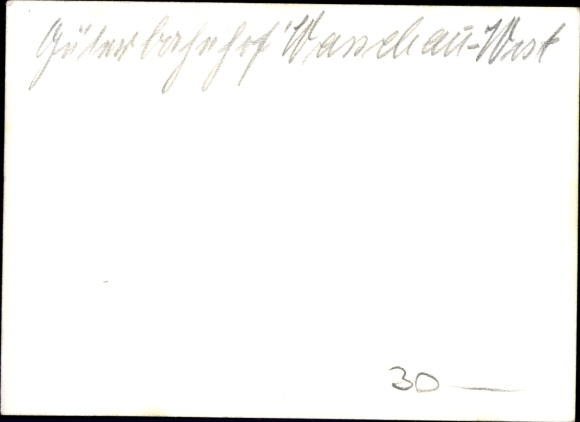 Güterbahnhof Warschau-West
30 —